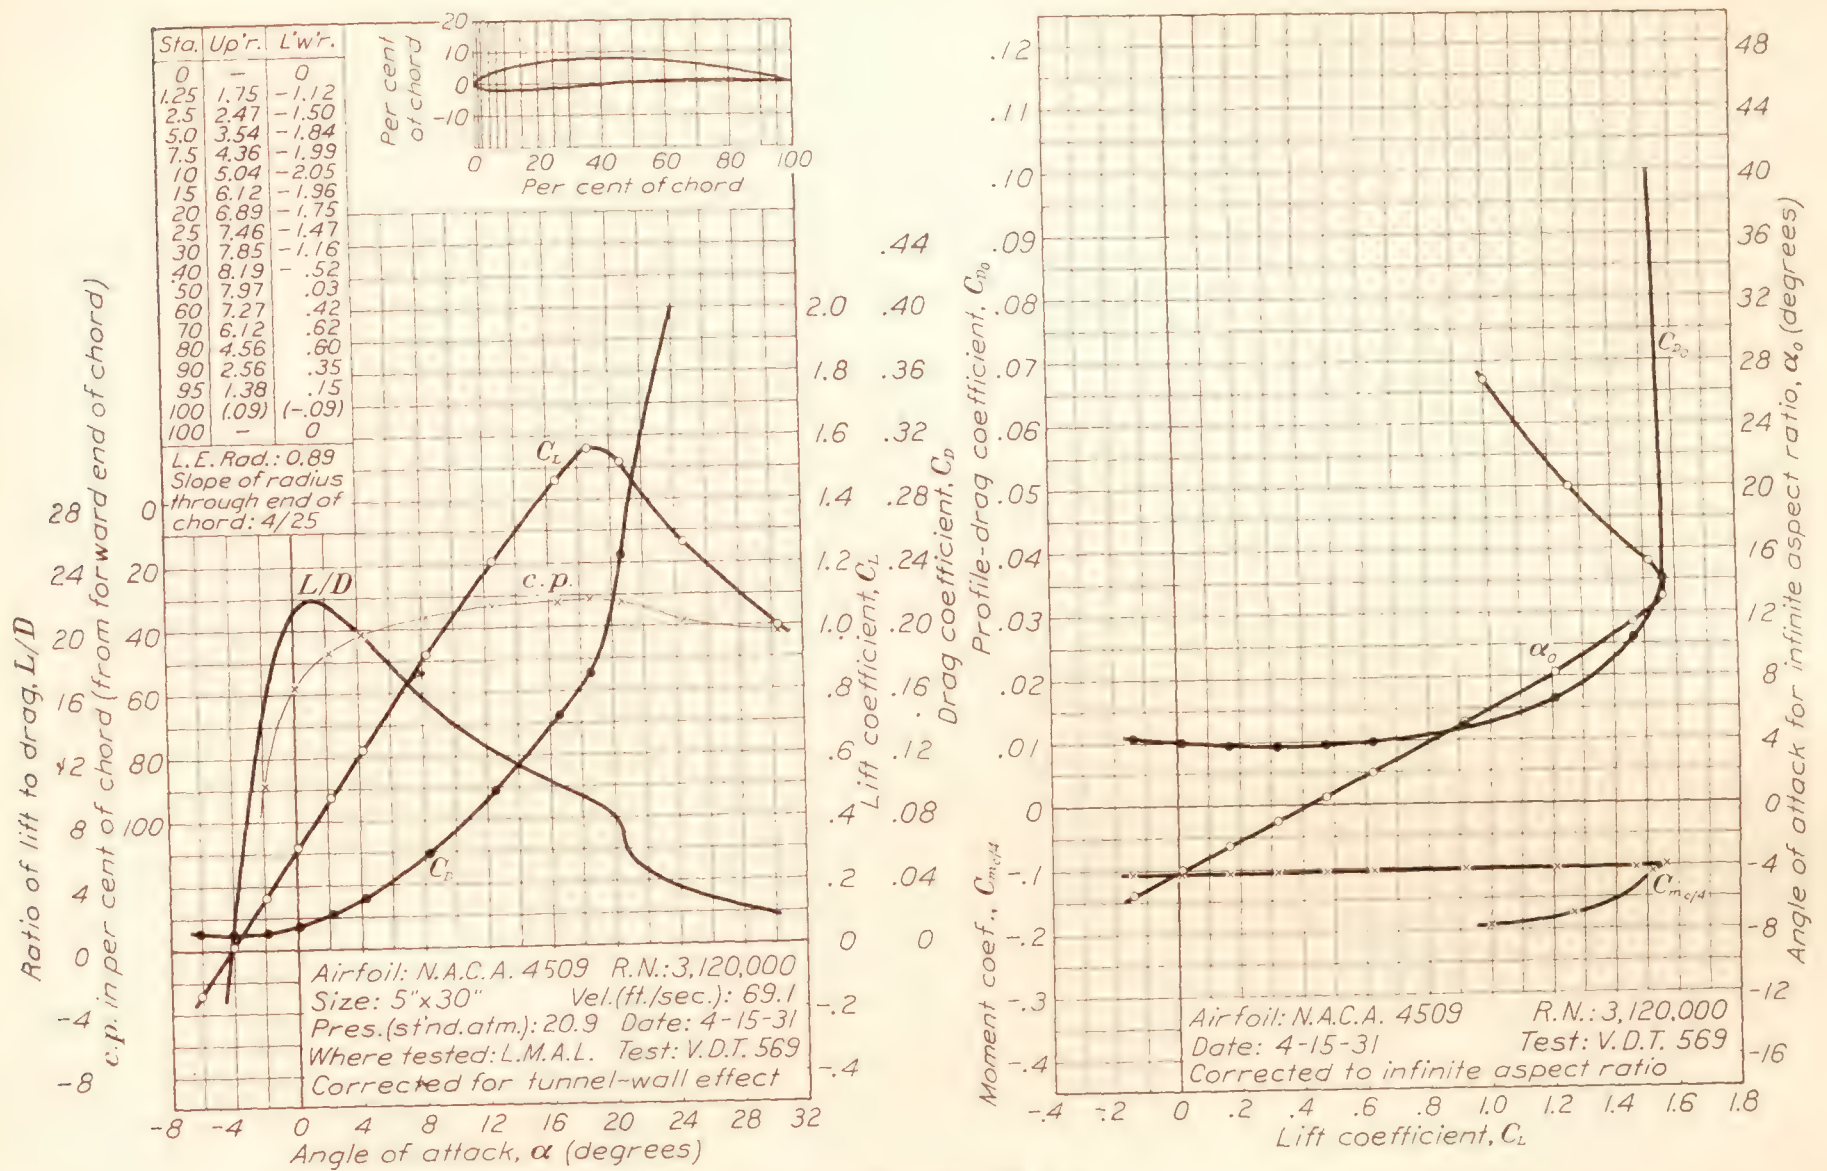 Sta. Up'r. L'w'r.
0 – 0
1.25 1.75 -1.12
2.5 2.47 -1.50
5.0 3.54 -1.84
7.5 4.36 -1.99
10 5.04 -2.05
15 6.12 -1.96
20 6.89 -1.75
25 7.46 -1.47
30 7.85 -1.16
40 8.19 - .52
50 7.97 .03
60 7.27 .42
70 6.12 .62
80 4.56 .60
90 2.56 .35
95 1.38 .15
100 (.09) (-.09)
100 – 0
L.E. Rad.: 0.89
Slope of radius
through end of
chord: 4/25
Per cent
of chord
20
10
0
-10
0 20 40 60 80 100
Per cent of chord
Ratio of lift to drag, L/D
28
24
20
16
12
8
4
0
-4
-8
c.p. in per cent of chord (from forward end of chord)
0
20
40
60
80
100
L/D
C_L
c.p.
C_D
.44
2.0 .40
1.8 .36
1.6 .32
1.4 .28
1.2 .24
1.0 .20
.8 .16
.6 .12
.4 .08
.2 .04
0 0
-.2
-.4
Lift coefficient, C_L
Drag coefficient, C_D
Airfoil: N.A.C.A. 4509 R.N.: 3,120,000
Size: 5"x30" Vel.(ft./sec.): 69.1
Pres.(st'nd.atm.): 20.9 Date: 4-15-31
Where tested: L.M.A.L. Test: V.D.T. 569
Corrected for tunnel-wall effect
-8 -4 0 4 8 12 16 20 24 28 32
Angle of attack, α (degrees)
Profile-drag coefficient, C_D₀
.12
.11
.10
.09
.08
.07
.06
.05
.04
.03
.02
.01
0
Moment coef., C_m c/4
-.1
-.2
-.3
-.4
C_D₀
α₀
C_m c/4
48
44
40
36
32
28
24
20
16
12
8
4
0
-4
-8
-12
-16
Angle of attack for infinite aspect ratio, α₀ (degrees)
Airfoil: N.A.C.A. 4509 R.N.: 3,120,000
Date: 4-15-31 Test: V.D.T. 569
Corrected to infinite aspect ratio
-.4 -.2 0 .2 .4 .6 .8 1.0 1.2 1.4 1.6 1.8
Lift coefficient, C_L